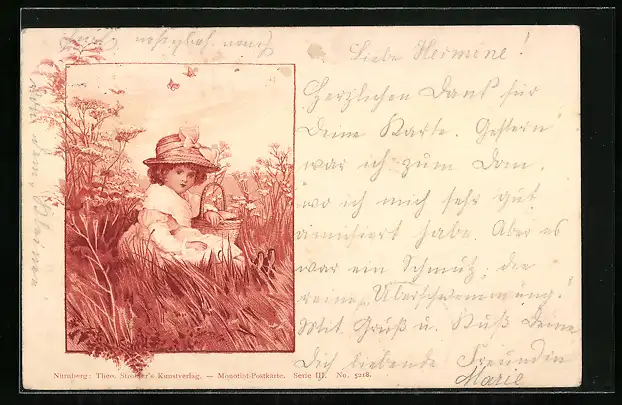 Liebe Hermine!
Herzlichen Dank für
Deine Karte. Gestern
war ich zum Dom,
wo ich mich sehr gut
amüsiert habe. Aber es
war ein Schmutz, die
reine „Überschwemmung".
Mit Gruß u. Kuß Deine
Dich liebende Freundin
Marie
Nürnberg: Theo. Stroefer's Kunstverlag. — Monotint-Postkarte. Serie III. No. 5218.